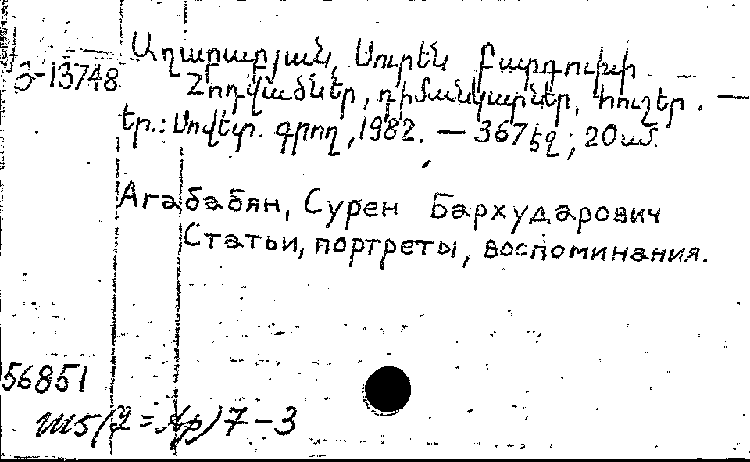 Աղաբաբյան, Սուրեն Բարդուխի
Յ-13748
Հոդվածներ, դիմանկարներ, հուշեր. —
Եր.: Սովետ. գրող, 1982. — 367 էջ; 20 սմ.
Агабабян, Сурен Бархударович
Статьи, портреты, воспоминания.
56851
Ш5(2=Ар)7-3